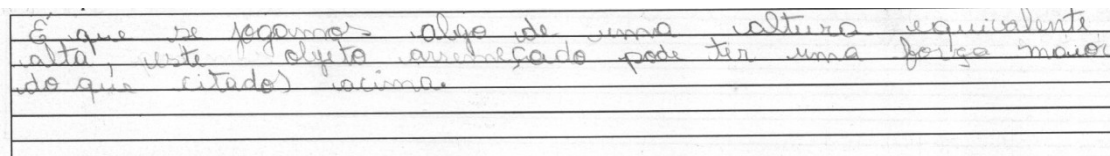 É que se jogamos algo de uma altura equivalente
alta, este objeto arremeçado pode ter uma força maior
do que citados acima.